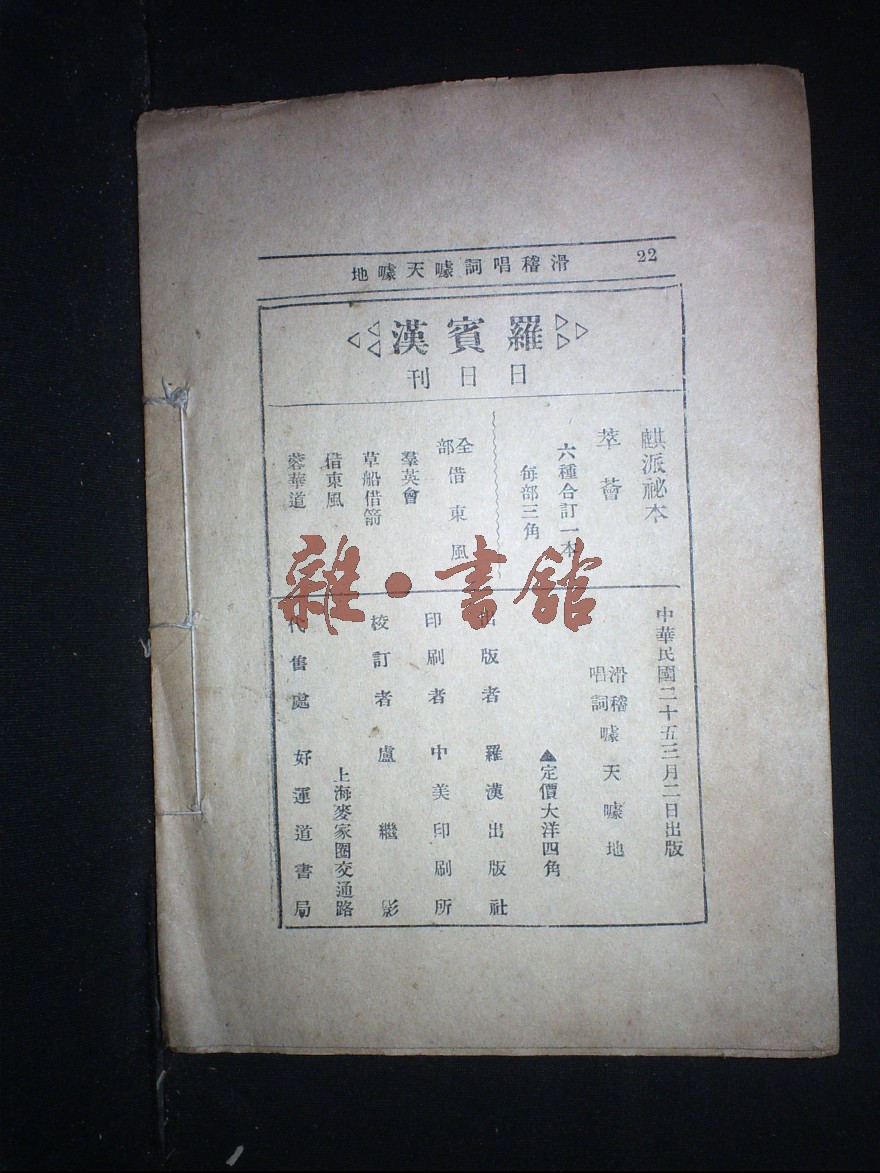 22
滑稽唱詞噱天噱地
羅賓漢
日日刊
麒派祕本
萃薈
六種合訂一本
每部三角
全部借東風
羣英會
草船借箭
借東風
蓉華道
中華民國二十五三月二日出版
滑稽唱詞噱天噱地
▲定價大洋四角
出版者 羅漢出版社
印刷者 中美印刷所
校訂者 盧繼影
上海麥家圈交通路
代售處 好運道書局
雜·書館